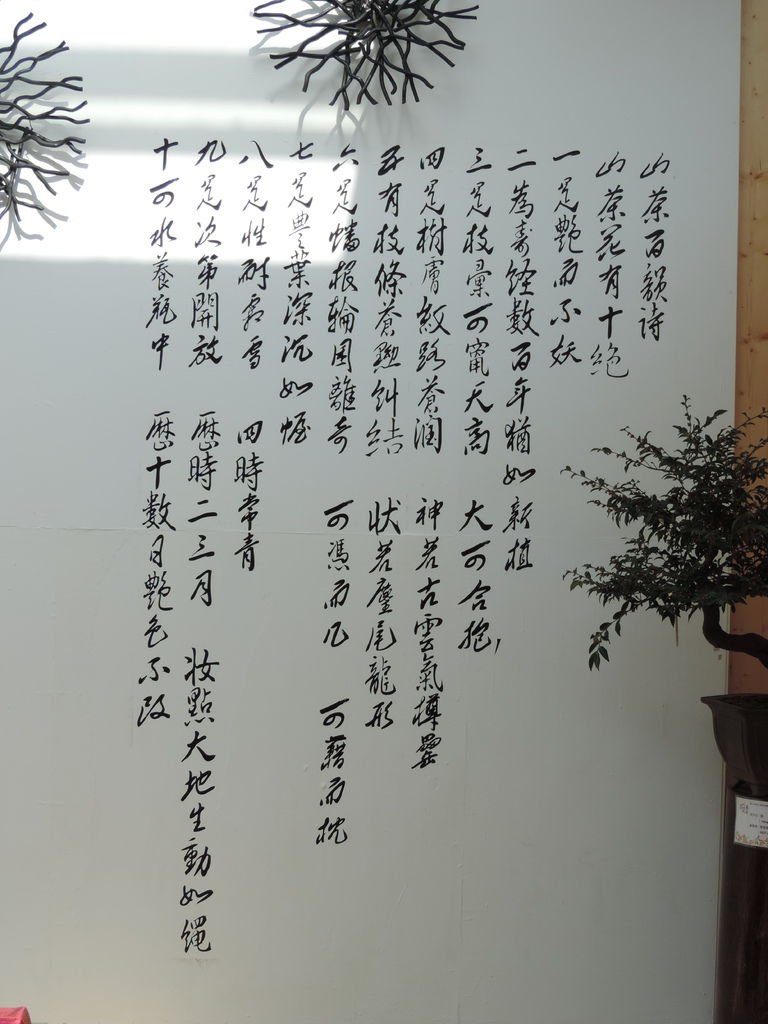 山茶百韻詩
山茶花有十絕
一是艷而不妖
二為壽經數百年猶如新植
三是枝彙可竄天高 大可合抱,
四是樹膚紋路蒼潤 神若古雲氣樽罍
五有枝條蒼黝糾結 狀若塵尾龍形
六是蟠根輪囷離奇 可憑而几 可藉而枕
七是豐葉深沉如幄
八是性耐霜雪 四時常青
九是次第開放 歷時二三月 妝點大地生動如繩
十可水養瓶中 歷十數日艷色不改